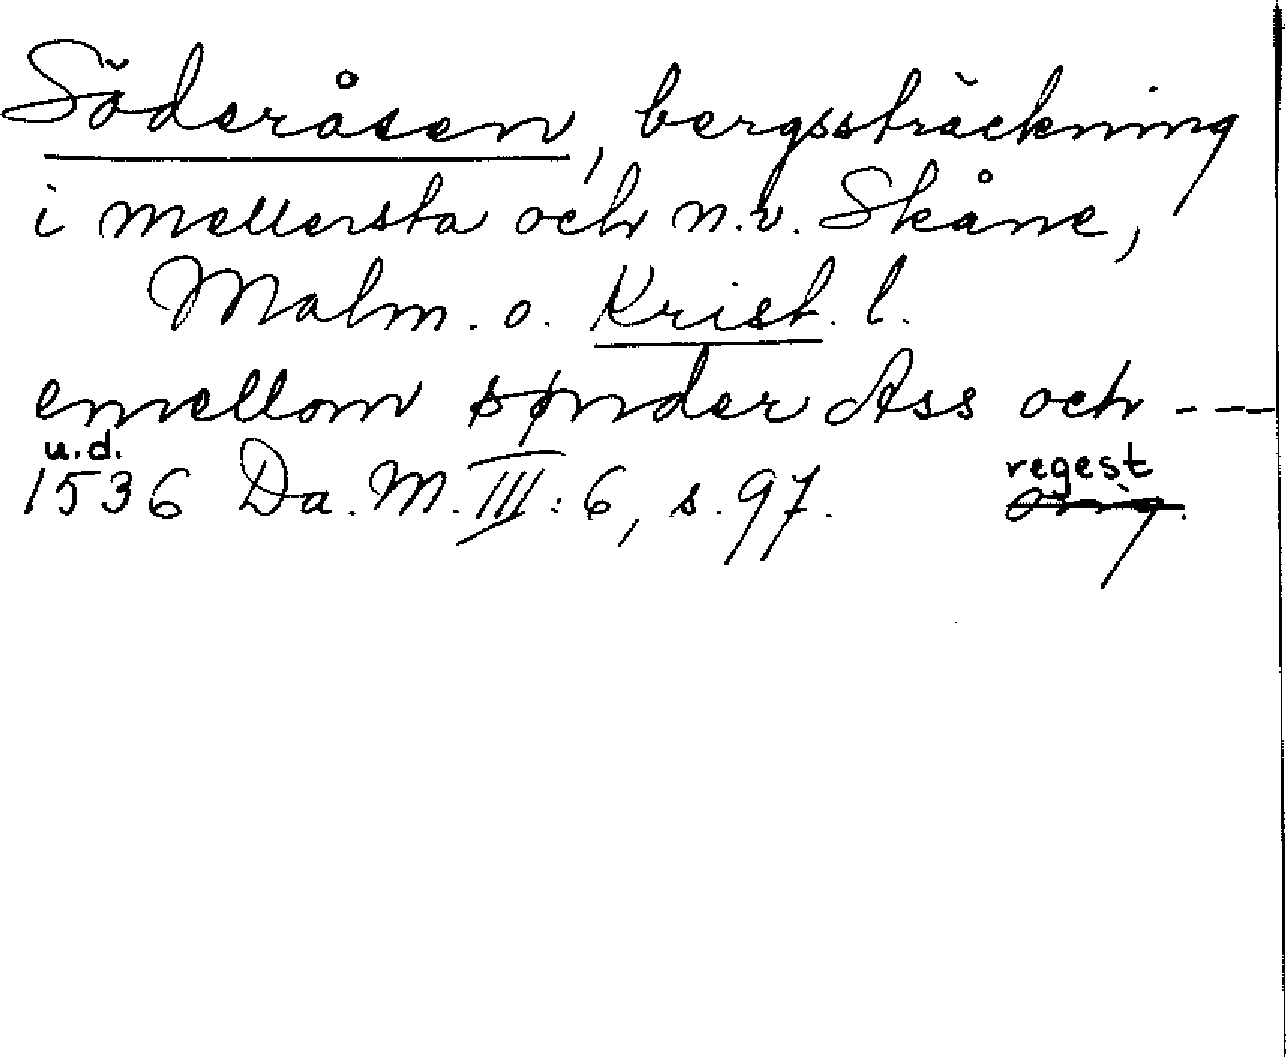 Söderåsen, bergssträckning
i mellersta och n.v. Skåne,
Malm. o. Krist. l.
emellom sønder Ass och ---
u.d.
1536 Da. M. III: 6, s. 97. regest
orig.